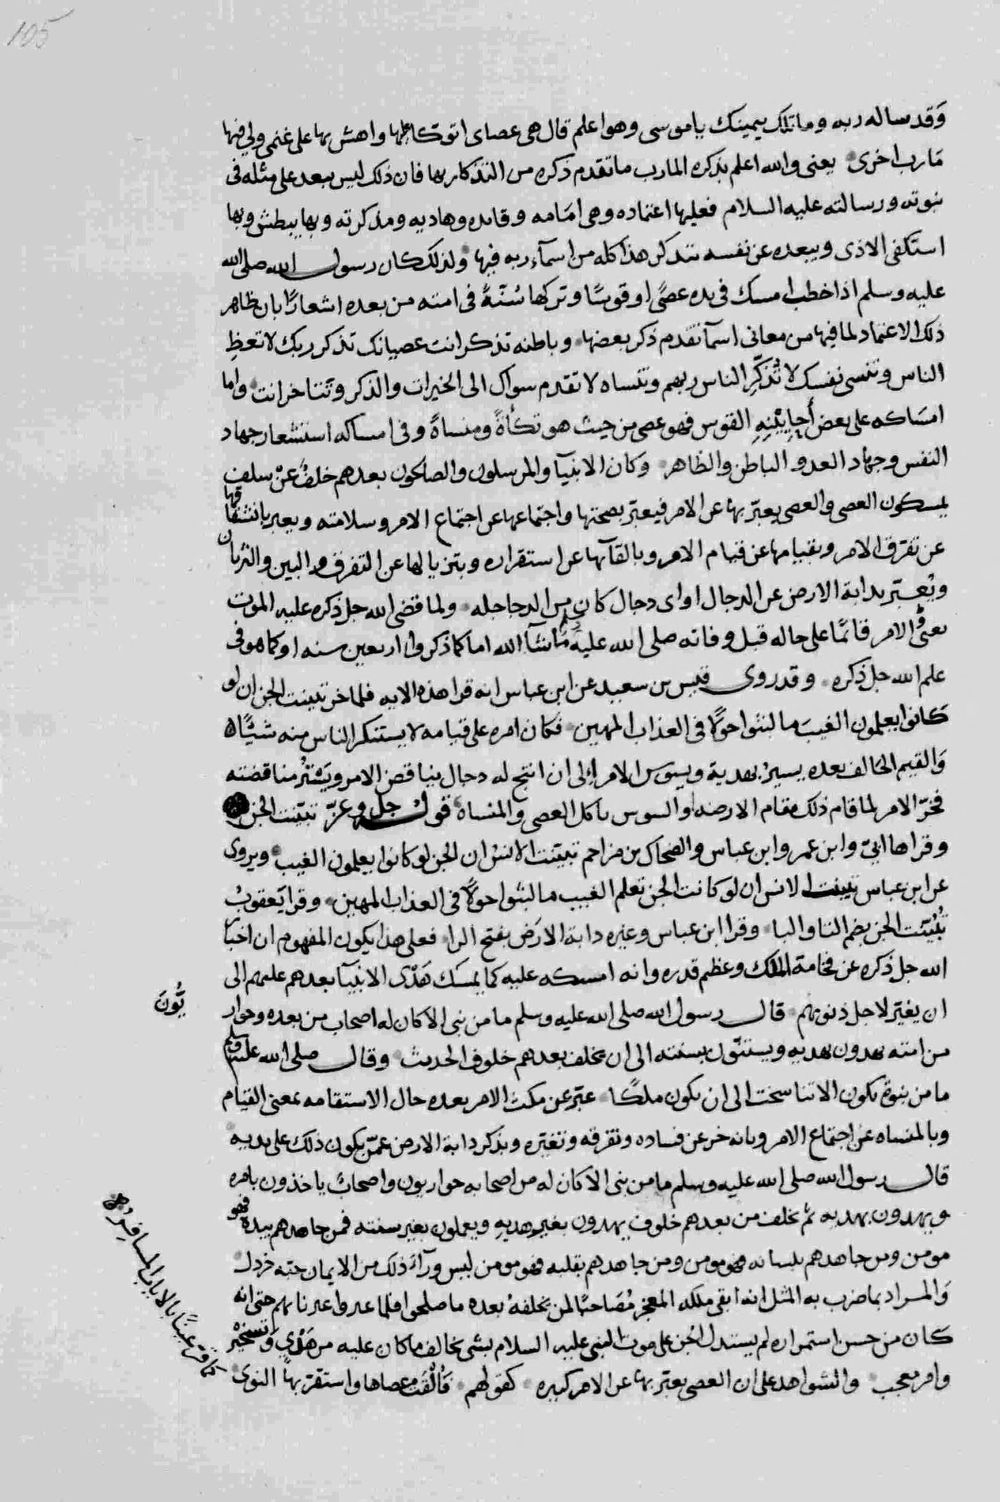 105
وَقد ساله ربه وما تلك بيمينك ياموسى وهو اعلم قال هى عصاى اتوكا عليها واهش بها على غنمى ولى فيها
مَارب اخرى يعنى والله اعلم بذكره المارب ما تقدم ذكره من التذكار بها فان ذلك ليس ببعد على مثله فى
نبوته ورسالته عليه السلام فعليها اعتماده وهى امَامه وقايده وهاديه ومذكرته وبها يبطش وبها
استكفى الاذى ويبعده عن نفسه تذكر هذا كله من اسمآء ربه فيها ولذلك كان رسول الله صلى الله
عليه وسلم اذا خطب امسك فى يده عصًى او قوسًا وتركها سُنّةً فى امته من بعده اشعارًا بان ظاهر
ذلك الاعتماد لما فيها من معانى اسمآ تقدم ذكر بعضها وباطنه تذكر انت عصيانك تذكر ربك لا تعظِ
الناس وتنسى نفسك لا تُذكِّر الناس ربهم وتنساه لا تقدم سواك الى الخيرات والذكر وتتاخر انت واما
امسَاكه على بعض القوس فهو عصى من حيث هو تكأةً ومنساةً وفى امساكه استشعار جهاد
النفس وجهاد العدو الباطن والظاهر وكان الانبيآ والمرسلون والصالحون بعدهم خلفٌ عن سلف
يمسكون العصى والعصى يعبّر بها عن الامر فيعبّر بصحتها واجتماعها عن اجتماع الامر وسلامته ويعبر بانشقاقها
عن تفرق الامر وبقيامها عن قيام الامر وبالقآئها عن استقراره وبتزيالها عن التفرق والبين
ويُعبّر بدابة الارض عن الدجال او اى دجال كان من الدجاجله ولما قضى الله جل ذكره عليه الموت
بقى الامر قائمًا على حاله قبل وفاته صلى الله عليه ما شآ الله اما كما ذكروا اربعين سنه او كما هو فى
علم الله جل ذكره وقد روى قيس بن سعيد عن ابن عباس انه قرا هذه الايه فلما خر تبينت الجن ان لو
كَانوا يعلمون الغيبَ ما لبثوا حولًا فى العذاب المهين فكان امره على قيامه لا يستنكر الناس منه شيئًا
وَالقيم الخالف بعده يسيرُ بهديه ويسوس الامر الى ان انتج له دجال يناقض الامر ويستُر مناقضته
فخرّ الامر لما قام ذلك مقام الارضه والسوس ياكل العصى والمنساة قوله جل وعزّ تبيّنت الجن
وقراها ابىّ وابن عمر وابن عباس والضحاك بن مزاحم تبيّنت الانسُ ان الجن لو كانوا يعلمون الغيب ويروى
عن ابن عباس تبينت الانس ان لو كانت الجن تعلم الغيب ما لبثوا حولًا فى العذاب المهين وقرا يعقوبُ
تُبُيّنت الجن بضم التا والبا وقرا ابن عباس وغيره دابة الارَض بفتح الرا فعلى هذا يكون المفهوم ان اخبار
الله جل ذكره عن فخامة الملك وعظم قدره وانه امسكه عليه كما يمسك هَدْى الانبيآ بعدهم عليهم الى
ان يغيّر لاجل ذنوبهم قال رسول الله صلى الله عليه وسلم ما من نبى الا كان له اصحاب من بعده وحوار
يُّونَ
من امته يهدون بهديه ويستنّون بسنته الى ان يخلف بعدهم خلوف الحديث وقال صلى الله عليه وسلم
ما من نبوة تكون الا تناسخت الى ان تكون ملكًا عبّر عن مكث الامر بعده حال الاستقامه بمعنى القيام
وبالمنساه عن اجتماع الامر وبانه خر عن فساده وتفرقه وتغيّره وبذكر دابة الارض عمّن يكون ذلك على يديه
قال رسول الله صلى الله عليه وسلم ما من نبى الا كان له من اصحابه حواريون واصحاب ياخذون بامره
ويهدون بهديه ثم يخلف من بعدهم خلوف يهدون بغير هديهِ ويعملون بغير سنته فمن جاهدهم بيده فهو
مومن ومن جاهدهم بلسانه فهو مومن ومن جاهدهم بقلبه فهو مومن ليس ورآءَ ذلك من الايمان حبّه خردل
وَالمراد بما ضرب به المثل انه ابقى ملكه المعجز مُصَاحبًا لمن يخلفهُ بعده ما صلحوا فلما غيروا غير ما بهم حتى انه
كان من حسن استمراره لم يستدل الجن على موت النبى عليه السلام بشى يخالف ما كان عليه من هَدْىٍ وتسخيْر
وامر معجب والشواهد على ان العصى يعبّر بها عن الامر كبيره كقولهم فَالْقَت عصاها واستقرّ بها النوى
كما قرّ عينًا بالاياب المسافِرُ